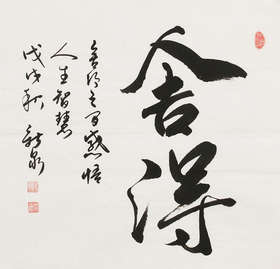 舍得
舍得之间感悟
人生智慧
戊戌秋